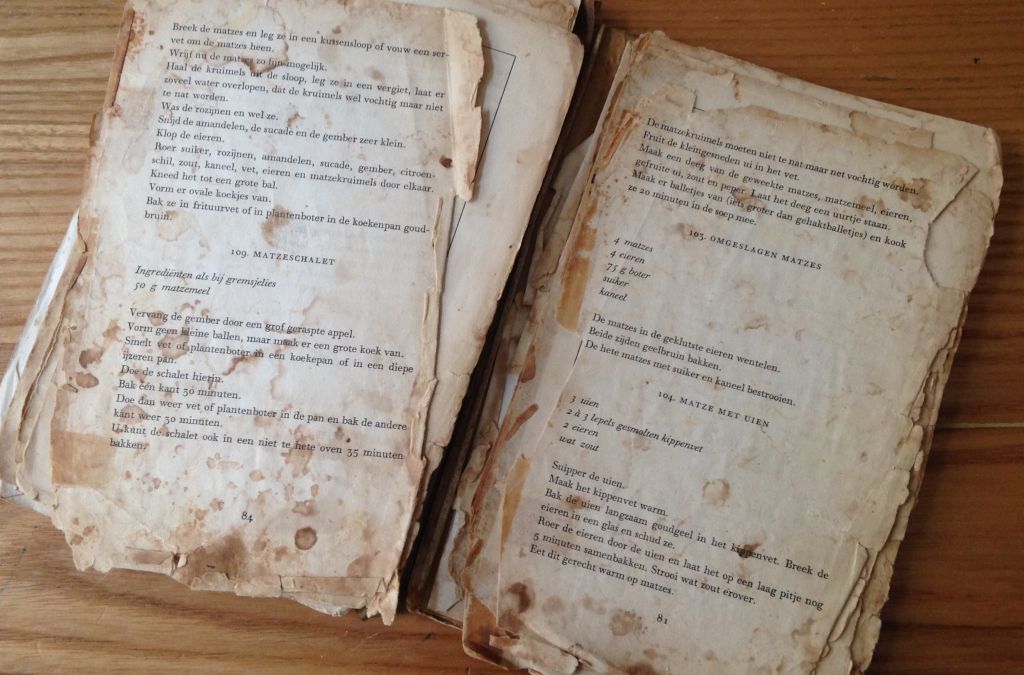 Breek de matzes en leg ze in een kussensloop of vouw een ser-
vet om de matzes heen.
Wrijf nu de matzes zo fijn mogelijk.
Haal de kruimels uit de sloop, leg ze in een vergiet, laat er
zoveel water overlopen, dat de kruimels wel vochtig maar niet
te nat worden.
Was de rozijnen en wel ze.
Snijd de amandelen, de sucade en de gember zeer klein.
Klop de eieren.
Roer suiker, rozijnen, amandelen, sucade, gember, citroen-
schil, zout, kaneel, vet, eieren en matzekruimels door elkaar.
Kneed het tot een grote bal.
Vorm er ovale koekjes van.
Bak ze in frituurvet of in plantenboter in de koekenpan goud-
bruin.
109. MATZESCHALET
Ingrediënten als bij gremsjelies
50 g matzemeel
Vervang de gember door een grof geraspte appel.
Vorm geen kleine ballen, maar maak er een grote koek van.
Smelt vet of plantenboter in een koekepan of in een diepe
ijzeren pan.
Doe de schalet hierin.
Bak één kant 30 minuten.
Doe dan weer vet of plantenboter in de pan en bak de andere
kant weer 30 minuten.
U kunt de schalet ook in een niet te hete oven 35 minuten
bakken.
84
De matzekruimels moeten niet te nat maar net vochtig worden.
Fruit de kleingesneden ui in het vet.
Maak een deeg van de geweekte matzes, matzemeel, eieren,
gefruite ui, zout en peper. Laat het deeg een uurtje staan.
Maak er balletjes van (iets groter dan gehaktballetjes) en kook
ze 20 minuten in de soep mee.
103. OMGESLAGEN MATZES
4 matzes
4 eieren
75 g boter
suiker
kaneel
De matzes in de geklutste eieren wentelen.
Beide zijden geelbruin bakken.
De hete matzes met suiker en kaneel bestrooien.
104. MATZE MET UIEN
3 uien
2 à 3 lepels gesmolten kippenvet
2 eieren
wat zout
Snipper de uien.
Maak het kippenvet warm.
Bak de uien langzaam goudgeel in het kippenvet. Breek de
eieren in een glas en schud ze.
Roer de eieren door de uien en laat het op een laag pitje nog
5 minuten samenbakken. Strooi wat zout erover.
Eet dit gerecht warm op matzes.
81